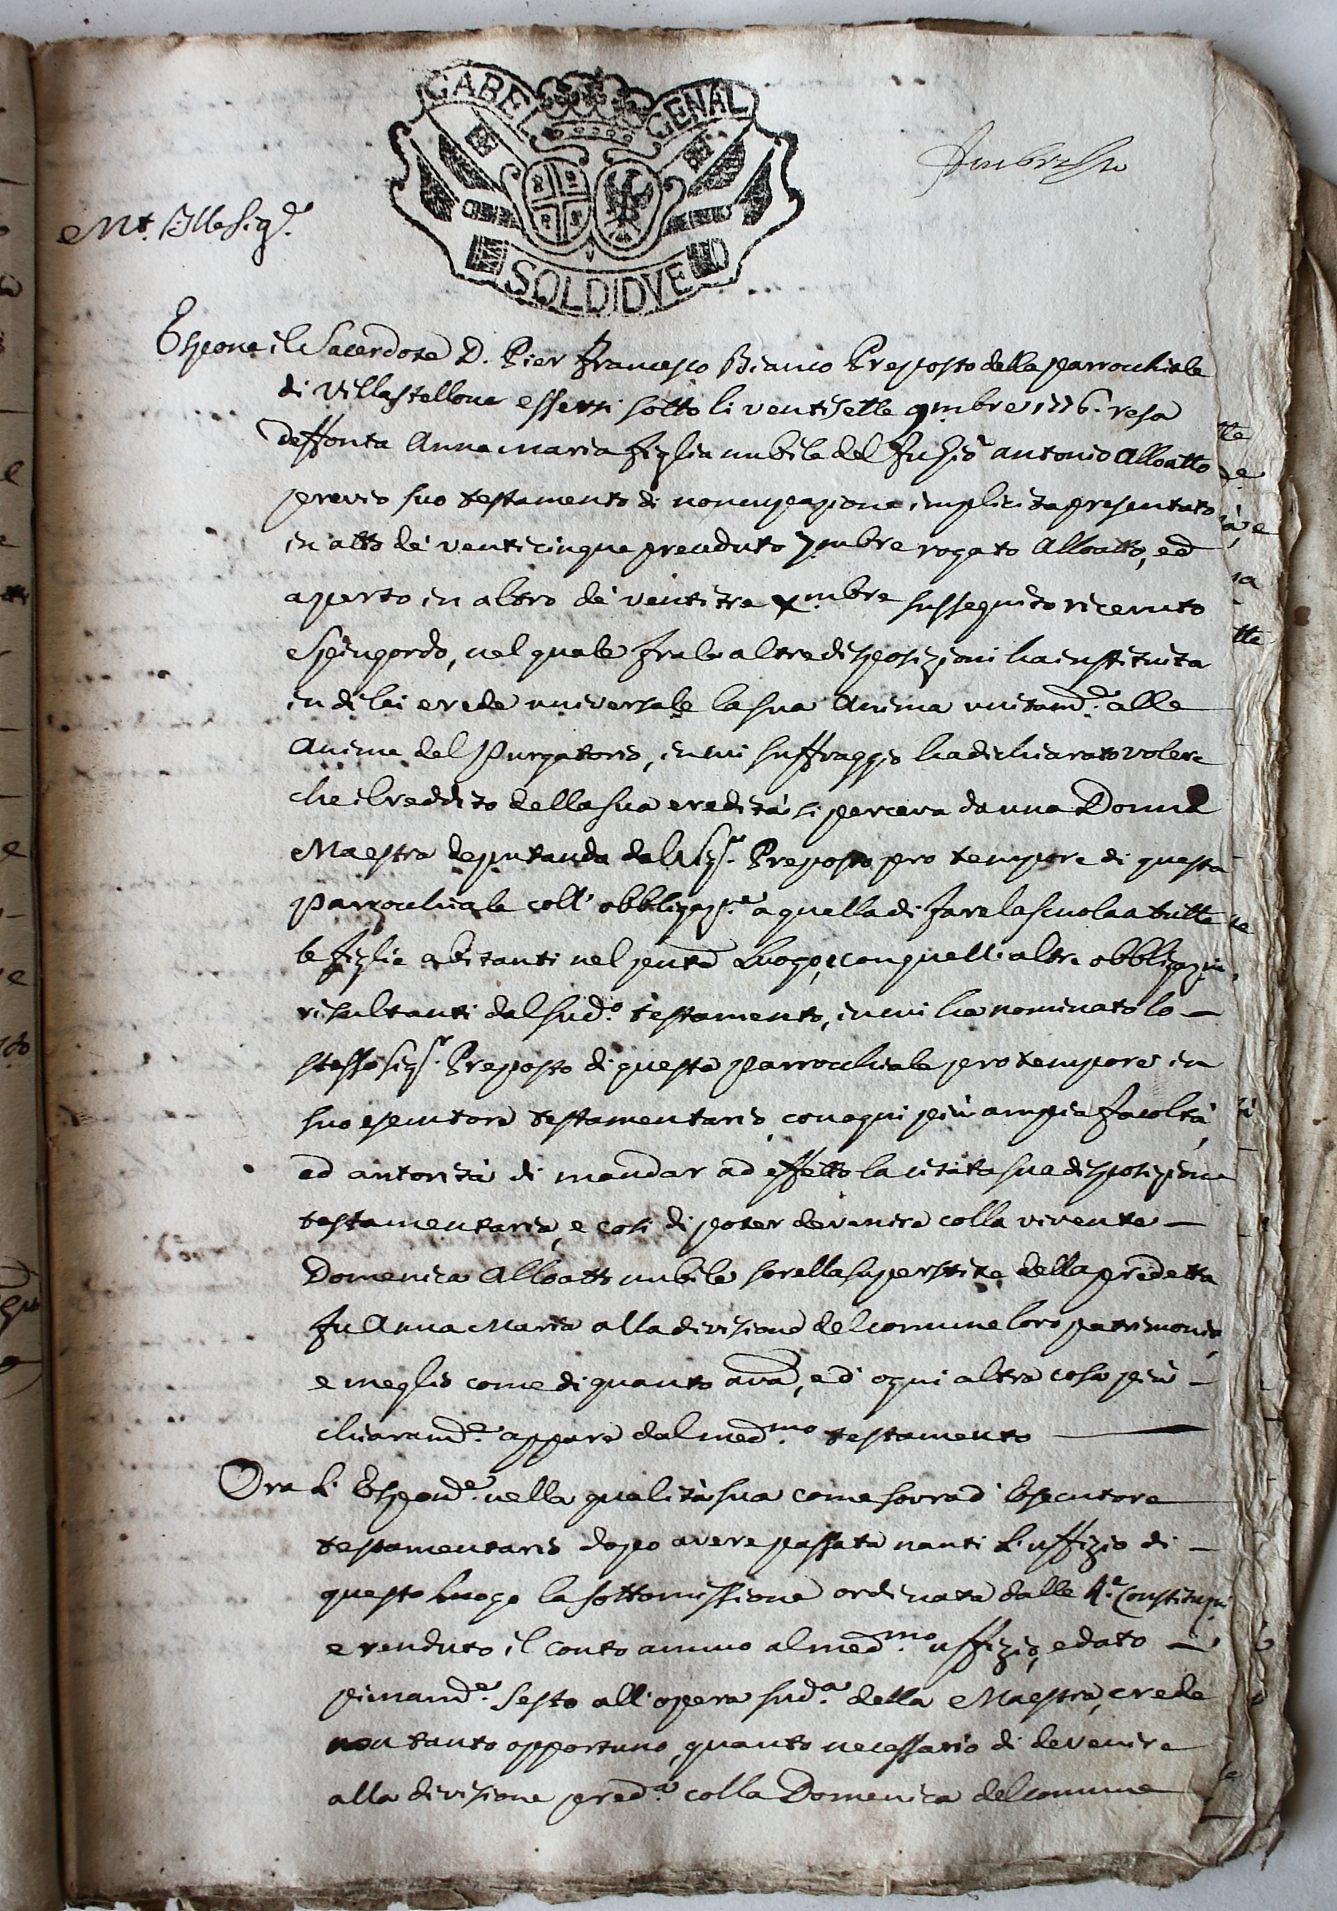 GABEL GENAL
SOLDI DVE
Mt. Ill.e Sig.e
Espone il Sacerdote D. Pier Francesco Bianco Preposto della parrochiale
di Villastellone essersi sotto li ventisette 9mbre 1776. resa
deffonta Anna Maria figlia nubile del fu Antonio Alloatto
previo suo testamento di noncupazione implicita presentato
in atto de' venticinque preceduto 7mbre rogato Alloatto, ed
aperto in altro de' ventitre Xmbre sussequito ricevuto
Spingordo, nel quale fra le altre disposizioni ha instituita
in di lei erede universale la sua Anima unitam.e alle
Anime del Purgatorio, in cui suffraggio ha dichiarato volere
che il reddito della sua eredità si perceva da una Donna
Maestra deputanda dal Sig.r Preposto pro tempore di questa
Parrochiale coll' obbligaz.ne a quella di fare la scuola a tutte
le figlie abitanti nel pnte Luogo, e con quelle altre obbligazni.
risultanti dal sud.o testamento, in cui ha nominato lo —
stesso Sig.r Preposto di questa parrochiale pro tempore in
suo esecutore testamentario, con ogni più ampia facoltà,
ed autorità di mandar ad effetto la citata sua disposizione
testamentaria, e così di poter devenire colla vivente —
Domenica Alloatti nubile sorella superstite della predetta
fu Anna Maria alla divisione del comune loro patrimonio,
e meglio come di quanto avā, ed ogni altra cosa più —
chiaram.e appare dal med.mo testamento —
Ora l' Espon.e nella qualità sua come sovra d' Esecutore
testamentario dopo avere passata nanti l' uffizio di —
questo Luogo la sottomissione ordinata dalle R.e Constituzni.
e renduto il conto annuo al med.mo uffizio, e dato —
pimam.e sesto all' opera sud.a della Maestra, crede
non tanto opportuno, quanto necessario di devenire
alla divisione pred.a colla Domenica del comune